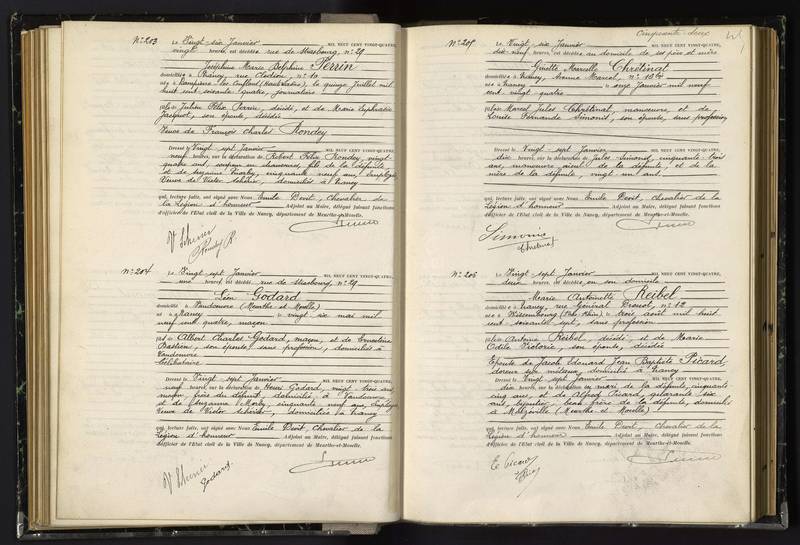 N° 203
Le Vingt-six Janvier MIL NEUF CENT VINGT-QUATRE,
vingt heures, est décédée rue de Strasbourg, n° 29
Joséphine Marie Delphine Perrin
domiciliée à Nancy, rue Clodion, n° 10
née à Dompierre (Haute Saône), le quinze Juillet mil
huit cent soixante quatre, journalière
fille de Julien Félix Perrin, décédé, et de Marie Euphrasie
Jacquot, son épouse, décédée
Veuve de François Charles Rondey
Dressé le Vingt-sept Janvier MIL NEUF CENT VINGT-QUATRE,
neuf heures, sur la déclaration de Robert Félix Rondey, vingt
quatre ans, fils de la défunte,
et de Suzanne Marby, cinquante neuf ans, employée
Veuve de Victor Schérier, domiciliés à Nancy
qui, lecture faite, ont signé avec Nous Emile Devit, Chevalier de
la Légion d'honneur Adjoint au Maire, délégué faisant fonctions
d'officier de l'Etat civil de la Ville de Nancy, département de Meurthe-et-Moselle.
V Scherier
Rondey R.
N° 204
Le Vingt-sept Janvier MIL NEUF CENT VINGT-QUATRE,
une heure, est décédé rue de Strasbourg, n° 29
Léon Godard
domicilié à Vandoeuvre (Meurthe et Moselle)
né à Nancy le vingt six mai mil
neuf cent quatre, maçon
fils de Albert Charles Godard, maçon, et de Ernestine
Bastien, son épouse, sans profession, domiciliés à
Vandoeuvre
Célibataire
Dressé le Vingt-sept Janvier MIL NEUF CENT VINGT-QUATRE,
neuf heures, sur la déclaration de Henri Godard, vingt trois ans
maçon, frère du défunt, domicilié à Vandoeuvre
et de Suzanne Marby, cinquante neuf ans, employée
Veuve de Victor Schérier, domiciliée à Nancy
qui, lecture faite, ont signé avec Nous Emile Devit, Chevalier de la
Légion d'honneur Adjoint au Maire, délégué faisant fonctions
d'officier de l'Etat civil de la Ville de Nancy, département de Meurthe-et-Moselle.
V Scherier
Godard.
Cinquante-deux
N° 205
Le Vingt-six Janvier MIL NEUF CENT VINGT-QUATRE,
dix-neuf heures, est décédée au domicile de ses père et mère
Ginette Marcelle Chrétinat
domiciliée à Nancy, n° 19
née à Nancy le onze Janvier mil neuf
cent vingt quatre
fille de Marcel Jules Chrétinat, manoeuvre, et de
Louise Fernande Simonis, son épouse, sans profession
Dressé le Vingt-sept Janvier MIL NEUF CENT VINGT-QUATRE,
dix heures, sur la déclaration de Jules Simonis, cinquante trois
ans, manoeuvre, aïeul de la défunte, et de la
mère de la défunte, vingt un ans
qui, lecture faite, ont signé avec Nous Emile Devit, Chevalier de la
Légion d'honneur Adjoint au Maire, délégué faisant fonctions
d'officier de l'Etat civil de la Ville de Nancy, département de Meurthe-et-Moselle.
Simonis
Chretinat
N° 206
Le Vingt-sept Janvier MIL NEUF CENT VINGT-QUATRE,
deux heures, est décédée en son domicile
Marie Antoinette Reibel
domiciliée à Nancy, rue Général Drouot, n° 12
née à Wissembourg (Bas Rhin) le trois août mil huit
cent soixante sept, sans profession
fille de Antoine Reibel, décédé, et de Marie
Odile Victorie, son épouse, décédée
Epouse de Jacob Edouard Jean Baptiste Picard,
doreur sur métaux, domicilié à Nancy
Dressé le Vingt-sept Janvier MIL NEUF CENT VINGT-QUATRE,
dix heures, sur la déclaration du mari de la défunte, cinquante
cinq ans, et de Alfred Picard, quarante six
ans, bijoutier, beau frère de la défunte, domicilié
à Malzéville (Meurthe et Moselle)
qui, lecture faite, ont signé avec Nous Emile Devit, Chevalier de la
Légion d'honneur Adjoint au Maire, délégué faisant fonctions
d'officier de l'Etat civil de la Ville de Nancy, département de Meurthe-et-Moselle.
E. Picard